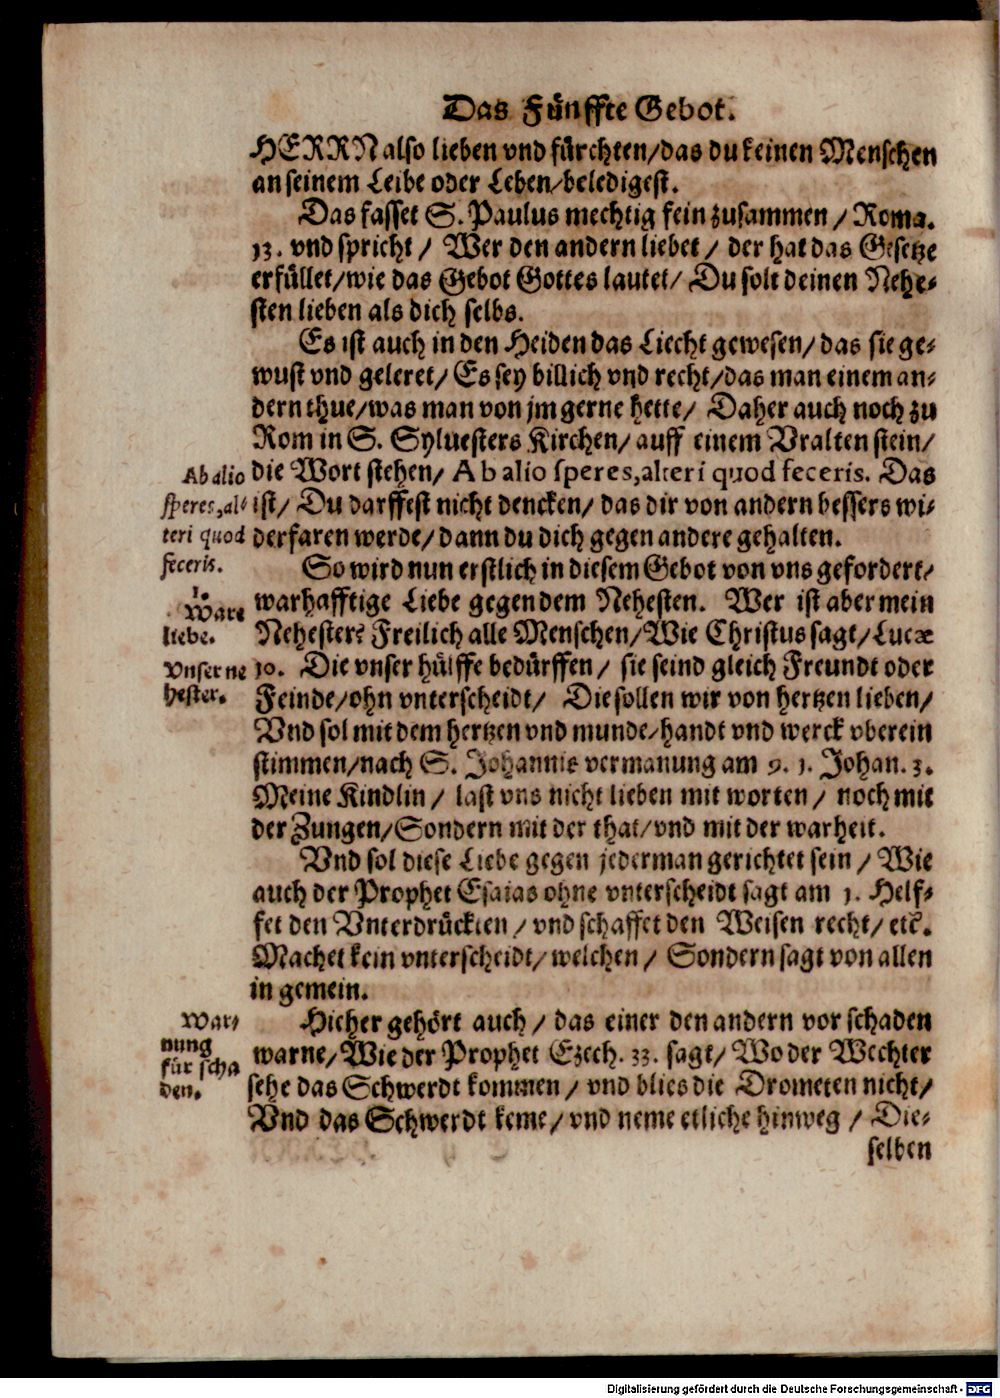 Das Fünffte Gebot.
HERRN also lieben vnd fürchten/das du keinen Menschen
an seinem Leibe oder Leben/beledigest.
Das fasset S. Paulus mechtig fein zusammen / Roma.
13. vnd spricht / Wer den andern liebet / der hat das Gesetze
erfüllet/wie das Gebot Gottes lautet/ Du solt deinen Nehe-
sten lieben als dich selbs.
Es ist auch in den Heiden das Liecht gewesen/das sie ge-
wust vnd geleret/Es sey billich vnd recht/das man einem an-
dern thue/was man von jm gerne hette/ Daher auch noch zu
Rom in S. Syluesters Kirchen/auff einem Vralten stein/
die Wort stehen/ Ab alio speres, alteri quod feceris. Das
ist/ Du darffest nicht dencken/das dir von andern bessers wi-
derfaren werde/dann du dich gegen andere gehalten.
Ab alio
speres, al-
teri quod
feceris.
So wird nun erstlich in diesem Gebot von vns gefordert/
warhafftige Liebe gegen dem Nehesten. Wer ist aber mein
Nehester? Freilich alle Menschen/Wie Christus sagt/Lucæ
10. Die vnser hülffe bedürffen/ sie seind gleich Freundt oder
Feinde/ohn vnterscheidt/ Die sollen wir von hertzen lieben/
Vnd sol mit dem hertzen vnd munde/handt vnd werck vberein
stimmen/nach S. Johannis vermanung am 9. 1. Johan. 3.
Meine Kindlin / last vns nicht lieben mit worten / noch mit
der Zungen/Sondern mit der that/vnd mit der warheit.
1.
Ware
liebe.
Vnser ne
hester.
Vnd sol diese Liebe gegen jederman gerichtet sein / Wie
auch der Prophet Esaias ohne vnterscheidt sagt am 1. Helf-
fet den Vnterdrückten / vnd schaffet den Weisen recht/ etc.
Machet kein vnterscheidt/welchen / Sondern sagt von allen
in gemein.
Hieher gehört auch / das einer den andern vor schaden
warne/Wie der Prophet Ezech. 33. sagt/Wo der Wechter
sehe das Schwerdt kommen / vnd blies die Drometen nicht/
Vnd das Schwerdt keme/vnd neme etliche hinweg / Die-
War-
nung
für scha
den.
selben
Digitalisierung gefördert durch die Deutsche Forschungsgemeinschaft - DFG